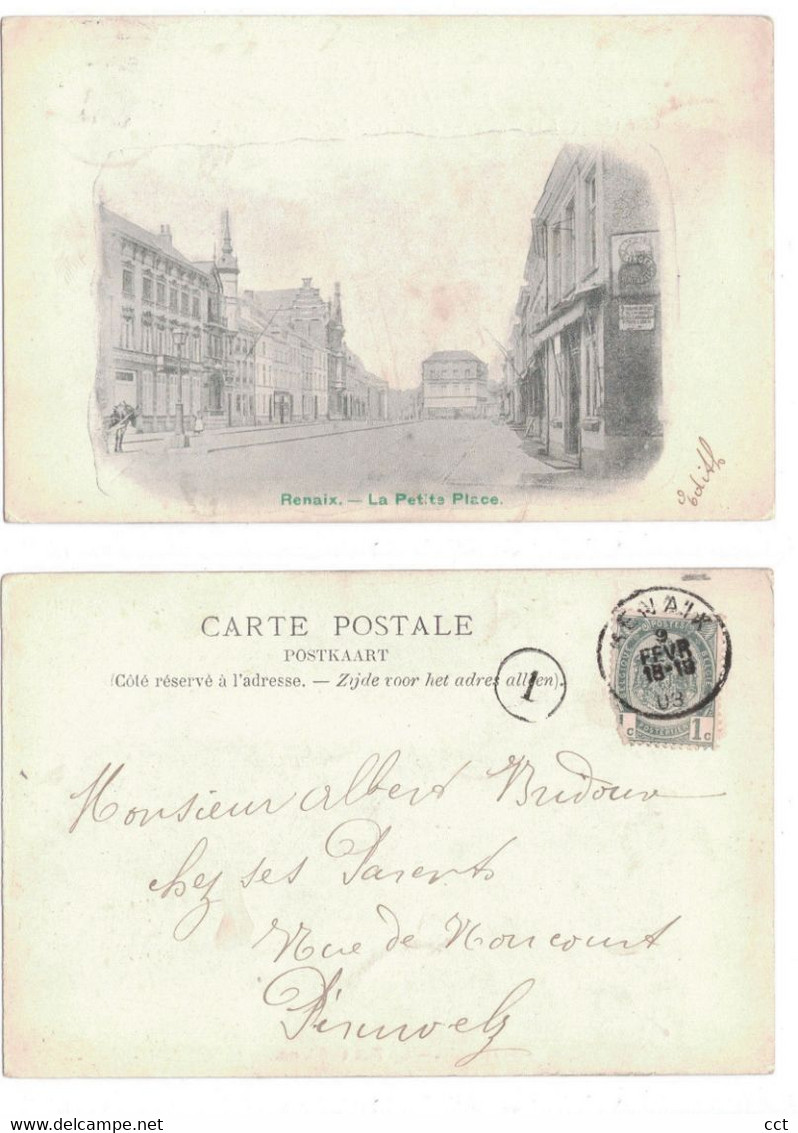 Renaix. — La Petite Place.
Edith
CARTE POSTALE
POSTKAART
(Côté réservé à l'adresse. — Zijde voor het adres alleen).
1
RENAIX
9
FEVR
18-19
03
POSTES
BELGIQUE
BELGIE
POSTERIJEN
1c
Monsieur Albert Bridoux
chez ses Parents
Rue de Honcourt
Péruwelz
www.delcampe.net
cct